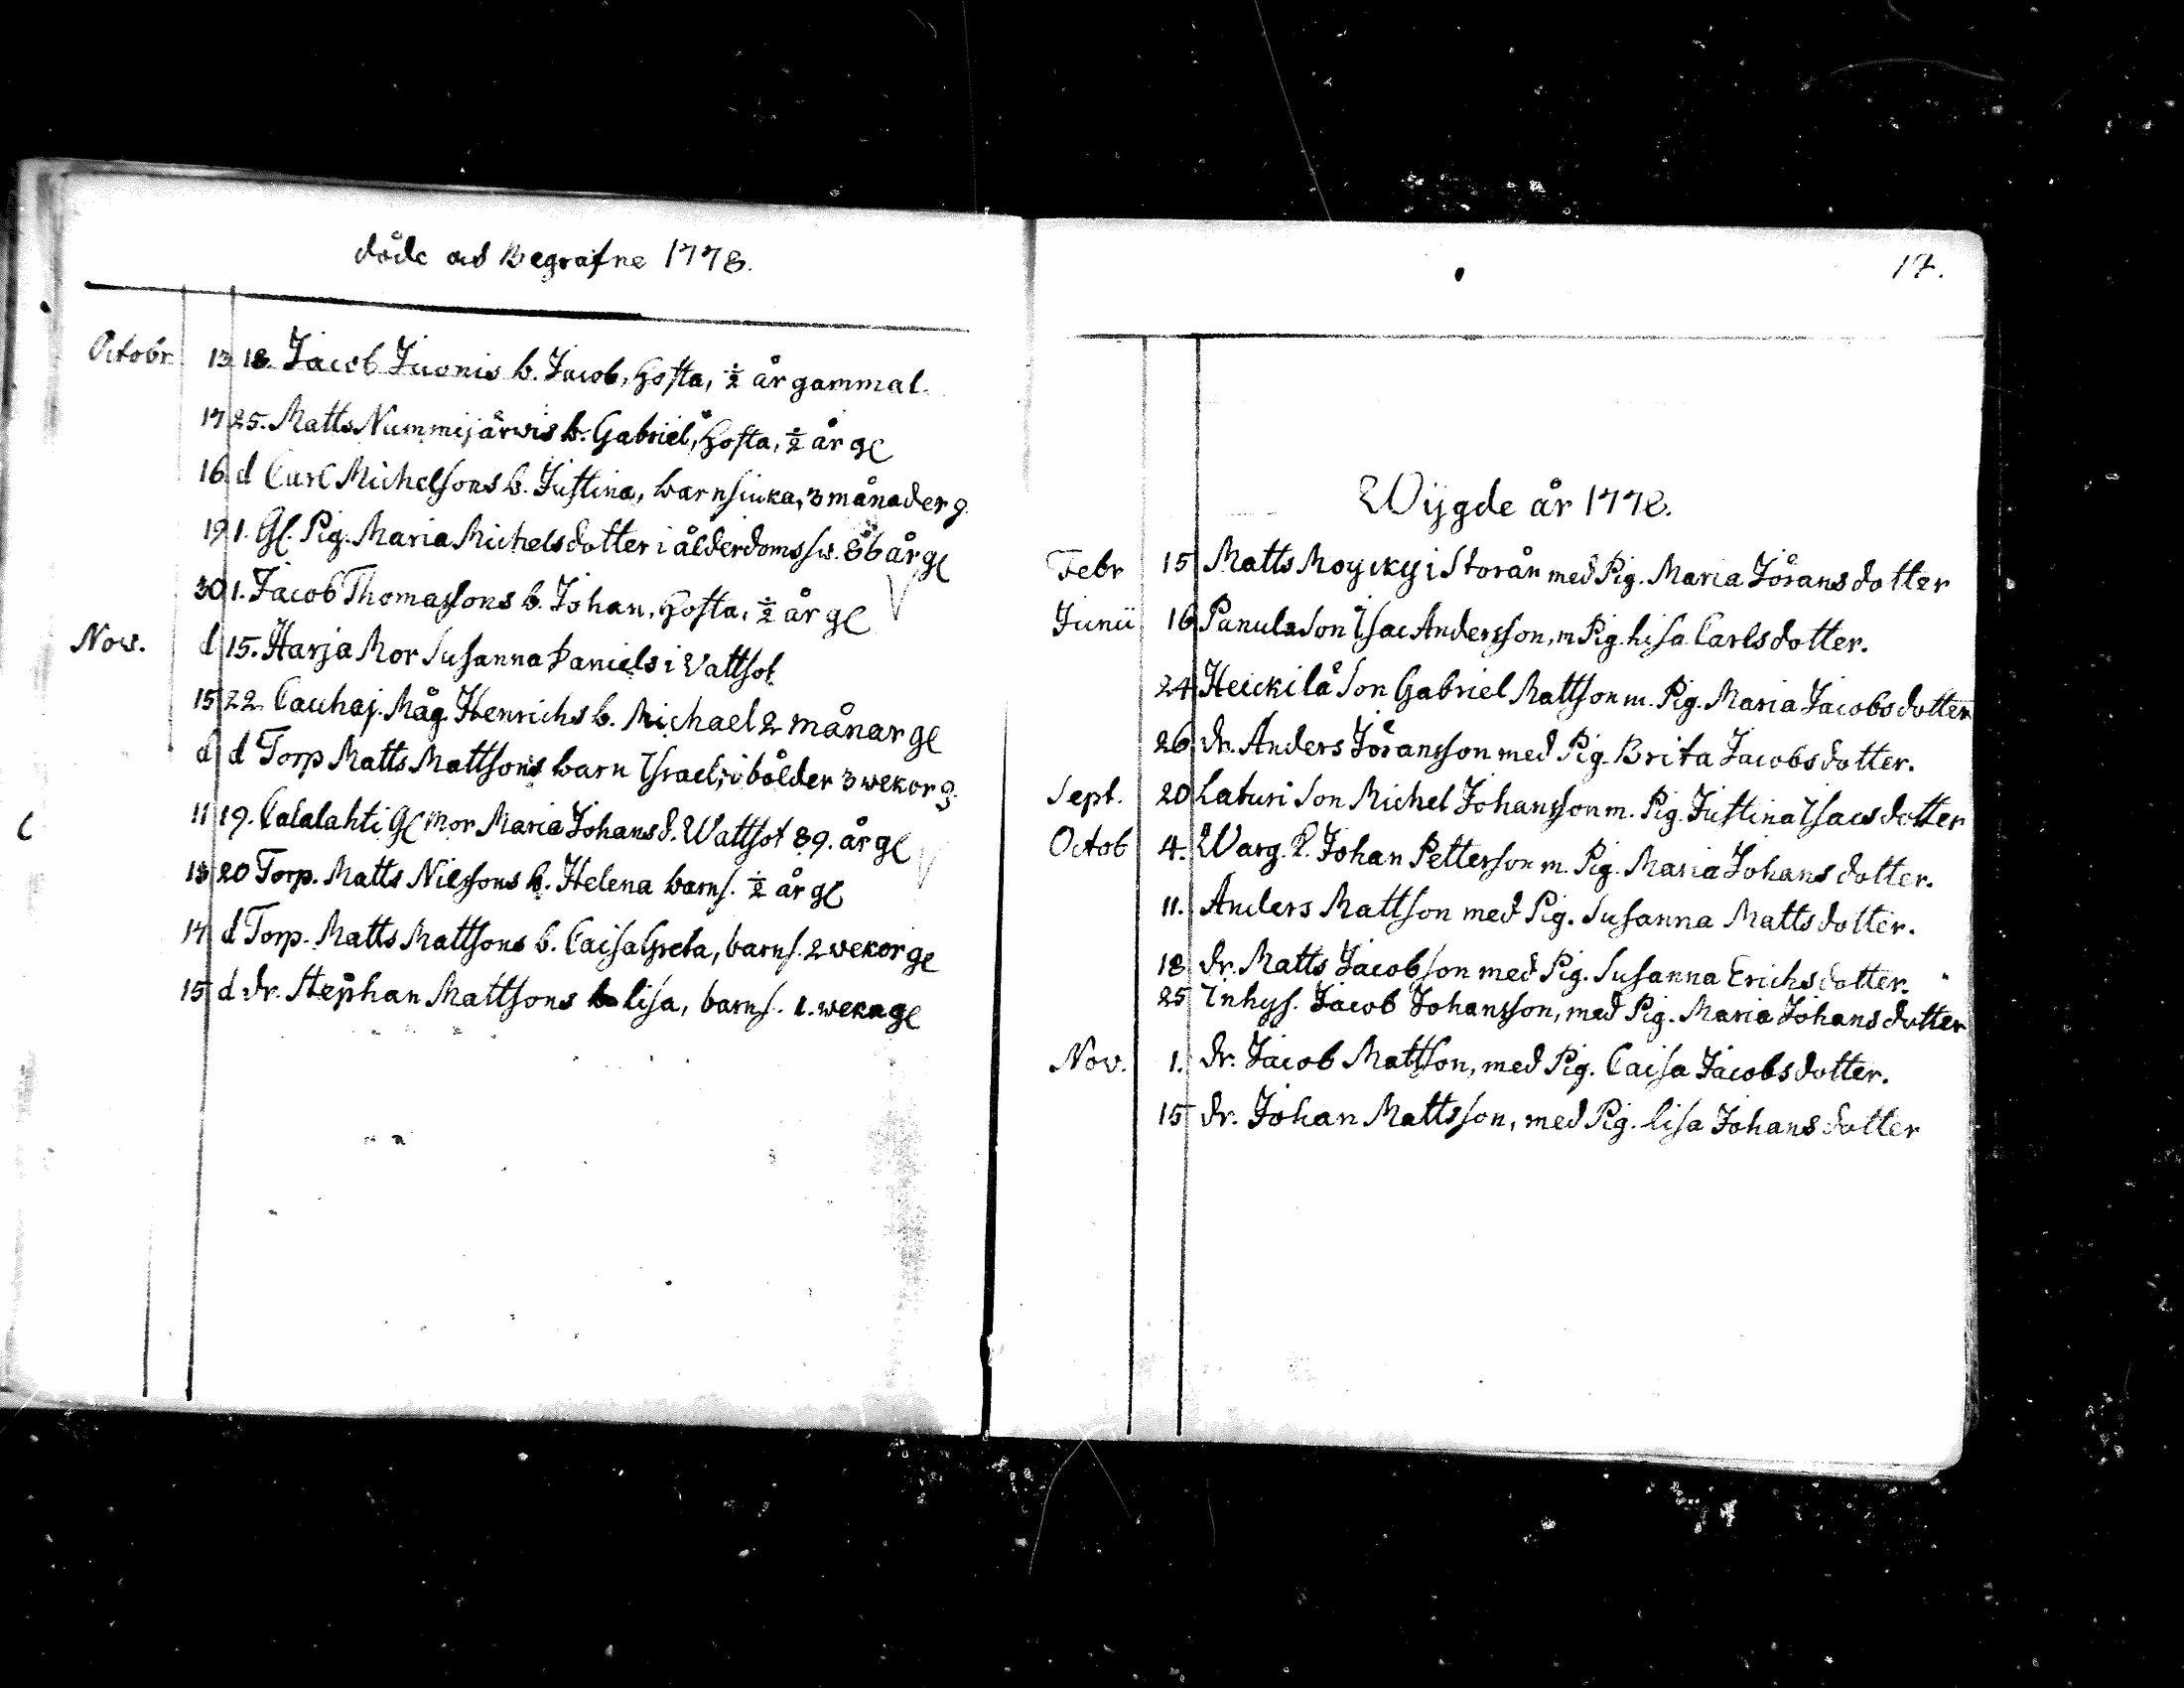 döde och Begrafne 1778.
Octobr. 13 18. Jacob Juonis b. Jacob, Hosta, ½ år gammal.
17 25. Matts Nummijärwis b. Gabriel, Hosta, ½ år gl
16 d Carl Michelsons b. Justina, barnsiuka, 3 månader g.
19 1. Gl. Pig. Maria Michelsdotter i ålderdomssw. 86 år gl
30 1. Jacob Thomassons b. Johan, Hosta, ½ år gl
Nov. d 15. Harja Mor Susanna Daniels i Vattsot
15 22 Cauhaj. Måg. Henrichs b. Michael 2 månar gl
d d Torp Matts Mattsons barn Israel, i bölder 3 wekor g.
11 19. Calalahti Gl Mor Maria Johansd. Wattsot 89. år gl
13 20 Torp. Matts Nilssons b. Helena barns. ½ år gl
14 d Torp. Matts Mattsons b. Caisa Greta, barns. 2 wekor gl
15 d dr. Stephan Mattsons b lisa, barns. 1. weka gl
17.
Wijgde år 1778.
Febr 15 Matts Moycky i Storån med Pig. Maria Jöransdotter
Junii 16 Panula Son Isac Andersson, m Pig. Lisa Carlsdotter.
24 Heickilä Son Gabriel Mattson m. Pig. Maria Jacobsdotter
26 dr. Anders Jöransson med Pig. Brita Jacobsdotter.
Sept. 20 Laturi Son Michel Johansson m. Pig. Justina Isacsdotter
Octob 4. Warg. Johan Petterson m. Pig. Maria Johansdotter.
11. Anders Mattson med Pig. Susanna Mattsdotter.
18 dr. Matts Jacobson med Pig. Susanna Erichsdotter.
25 Inhys. Jacob Johansson, med Pig. Maria Johansdotter
Nov. 1. dr. Jacob Mattson, med Pig. Caisa Jacobsdotter.
15 dr. Johan Mattsson, med Pig. lisa Johansdotter